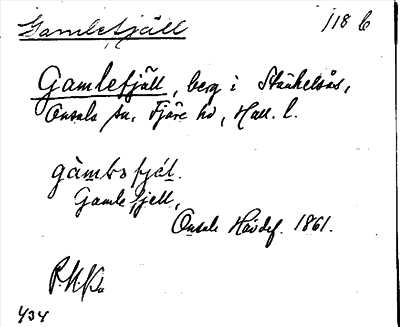 Gamlefjäll 118 b
Gamlefjäll, berg i Stäckelsås,
Onsala sn, Fjäre hd, Hall. l.
gàmbofjäl.
Gamle fjell,
Onsala Hävdef. 1861.
434